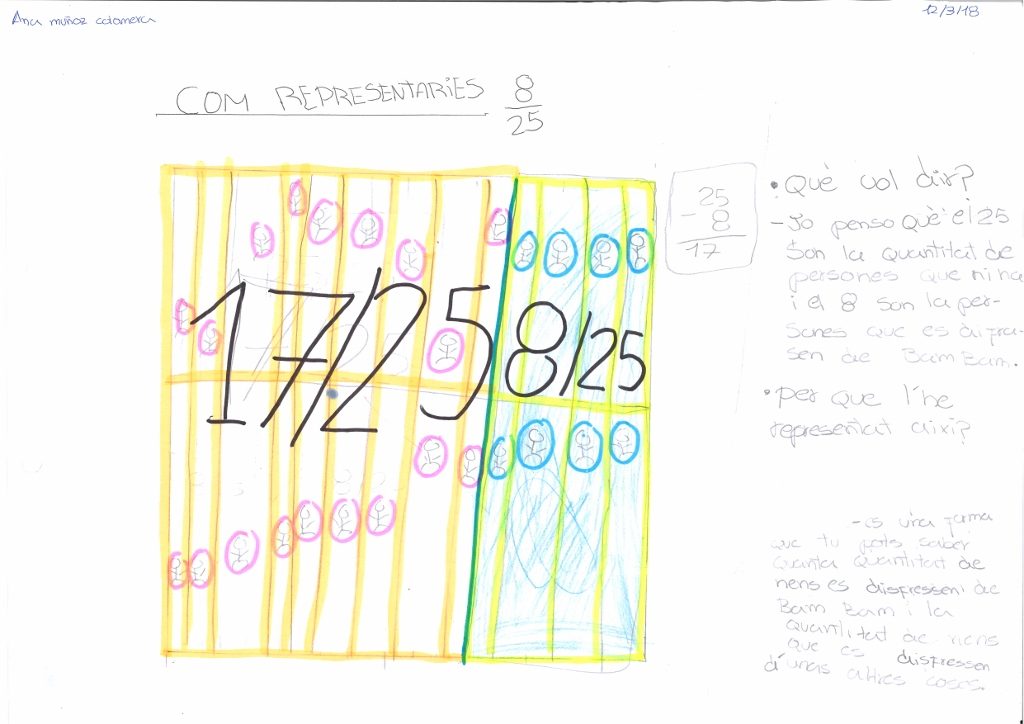 Ana muñoz colomera
12/3/18
COM REPRESENTARIES 8/25
17/25
8/25
25
- 8
17
• Què vol dir?
- Jo penso què el 25
son la quantitat de
persones que ni ha
i el 8 son la per-
sones que es disfra-
sen de Bam Bam.
• per que l'he
representat aixi?
- es una forma
que tu pots saber
quanta quantitat de
nens es disfressen de
Bam Bam i la
quantitat de nens
que es disfressen
d'unas altres coses.